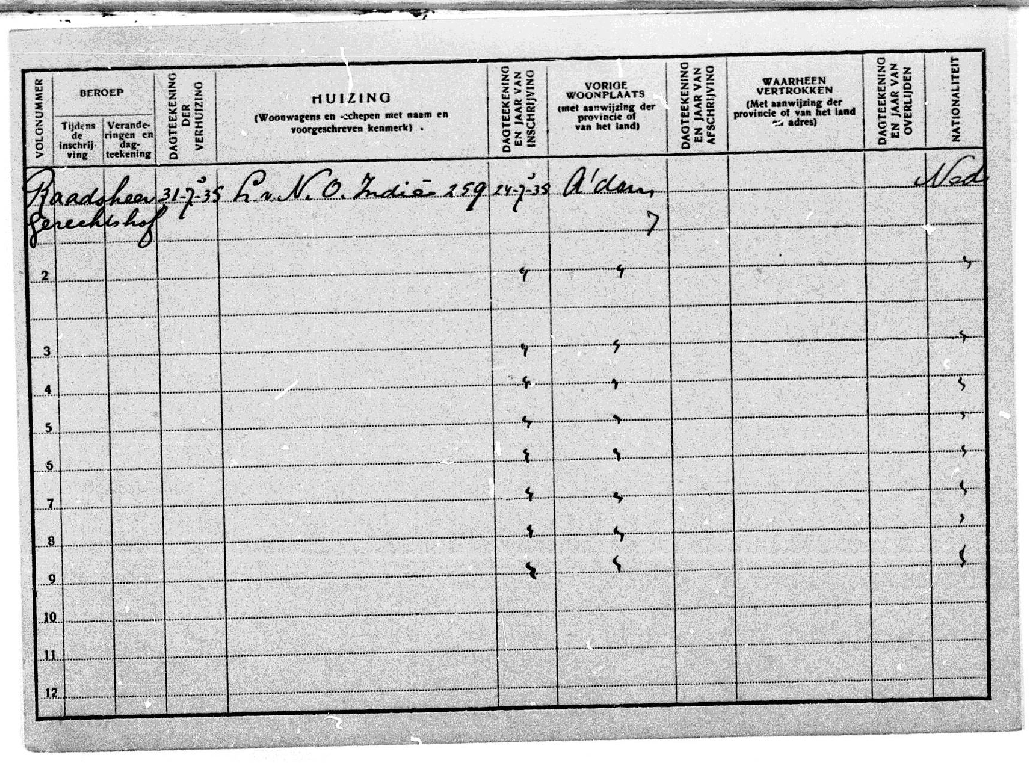 VOLGNUMMER
BEROEP
Tijdens
de
inschrij-
ving
Verande-
ringen en
dag-
teekening
DAGTEEKENING
DER
VERHUIZING
HUIZING
(Woonwagens en schepen met naam en
voorgeschreven kenmerk)
DAGTEEKENING
EN JAAR VAN
INSCHRIJVING
VORIGE
WOONPLAATS
(met aanwijzing der
provincie of
van het land)
DAGTEEKENING
EN JAAR VAN
AFSCHRIJVING
WAARHEEN
VERTROKKEN
(Met aanwijzing der
provincie of van het land
en adres)
DAGTEEKENING
EN JAAR VAN
OVERLIJDEN
NATIONALITEIT
Raadsheer 31-7-35 L. v. N. O. Indië 259 24-7-35 A'dam Ned
Gerechtshof 7
2
3
4
5
6
7
8
9
10
11
12